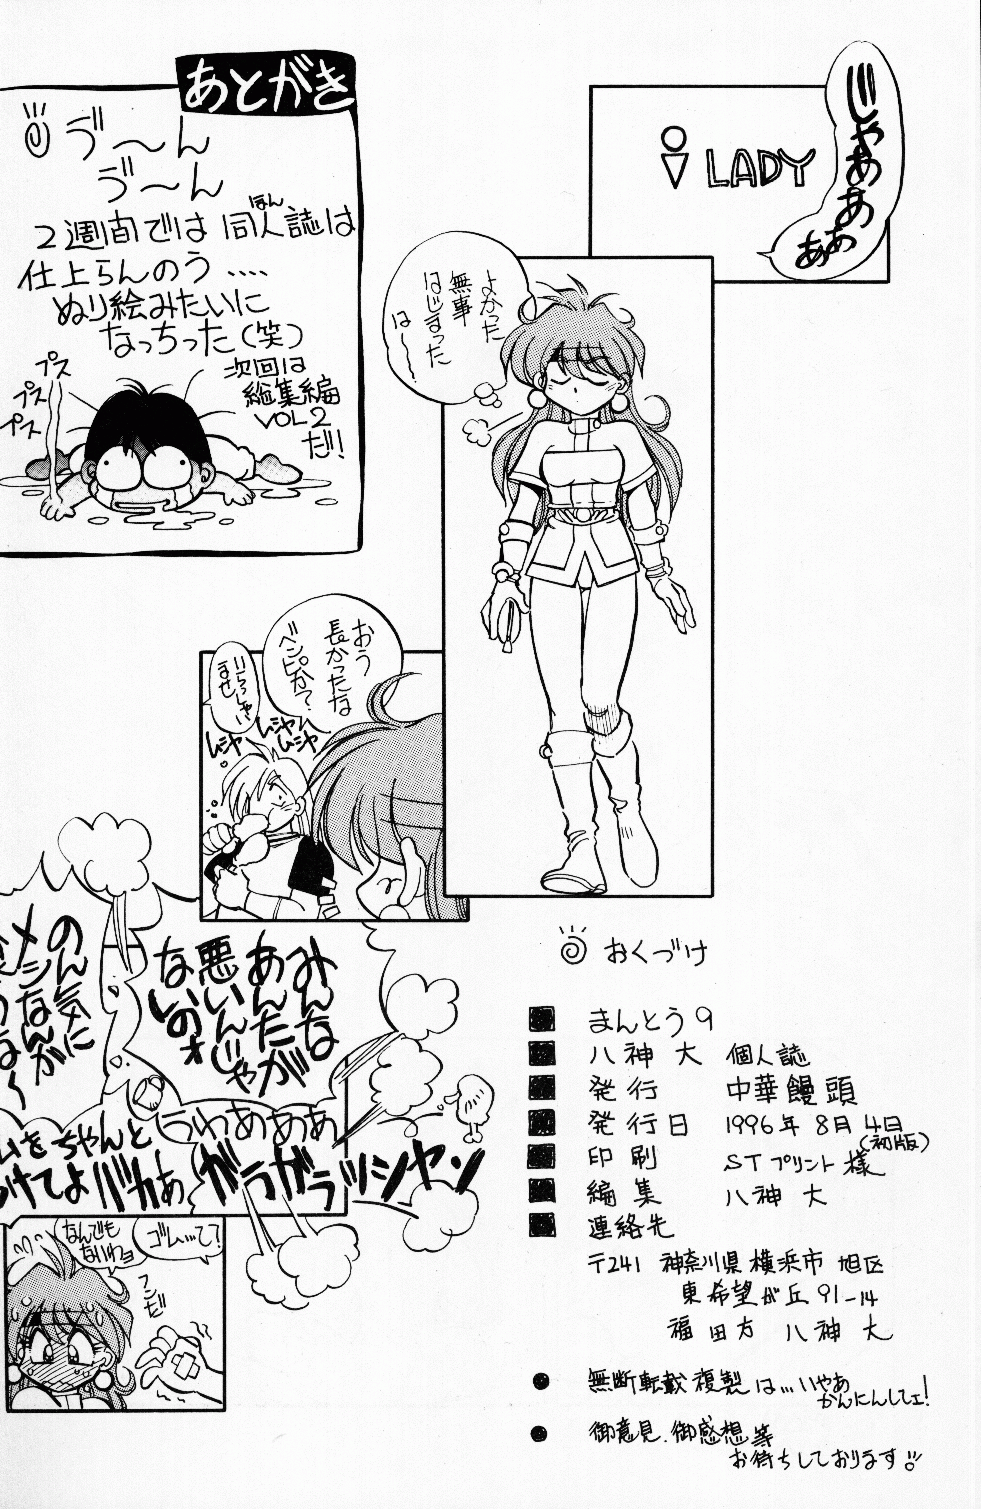 あとがき
ゔ〜ん
ゔ〜ん
2週間では同人誌は
ほん
仕上らんのう‥‥
ぬり絵みたいに
なっちった(笑)
次回は
総集編
VOL2
だ!!
プス
プス
プス
LADY
じゃあぁ
あぁぁ
よかった
無事
はじまった
は〜
おう
長かったな
ベンピか?
いらっしゃい
ませ
ムシャ
ムシャ
ムシャ
みんな
あんたが
悪いんじゃ
ないのォ
のん気に
メシなんか
うわあああ
ガラガラッシャン
ムをちゃんと
けてよバカぁ
ゴムって?
なんでも
ないわョ
フンだ
おくづけ
まんとう9
八神 大 個人誌
発行 中華饅頭
発行日 1996年8月4日
(初版)
印刷 STプリント様
編集 八神 大
連絡先
〒241 神奈川県横浜市旭区
東希望が丘91-14
福田方 八神 大
無断転載複製は…いやあ
かんにんしてェ!
御意見、御感想等
お待ちしております